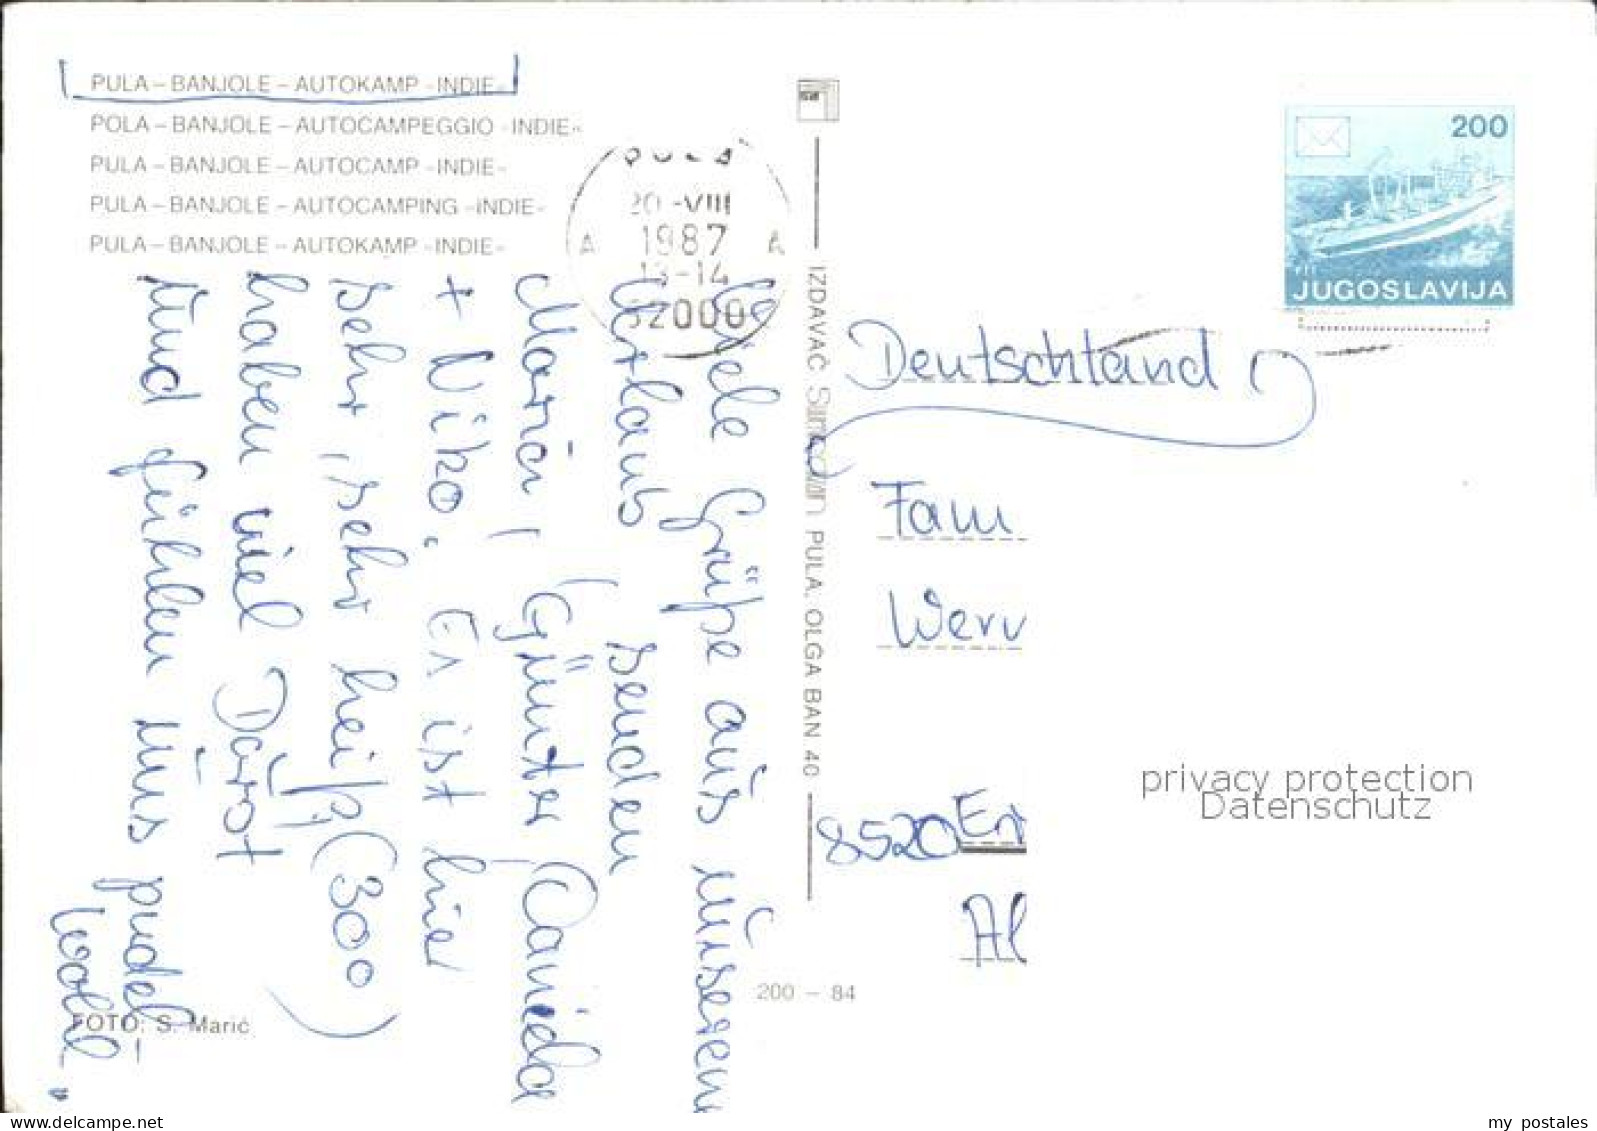 PULA – BANJOLE – AUTOKAMP »INDIE«
POLA – BANJOLE – AUTOCAMPEGGIO »INDIE«
PULA – BANJOLE – AUTOCAMP »INDIE«
PULA – BANJOLE – AUTOCAMPING »INDIE«
PULA – BANJOLE – AUTOKAMP »INDIE«
PULA
20-VIII
1987
13-14
A A
52000
200
JUGOSLAVIJA
Viele Grüße aus Unserem
Urlaub senden
Maria, Günter, Daniela
+ Niko. Es ist hier
sehr, sehr heiß, (30°)
haben viel Durst
Und fühlen Uns pudel-
wohl.
IZDAVAČ PULA, OLGA BAN 40
Deutschland
Fam
Wern
8520 Er
Al
privacy protection
Datenschutz
200 – 84
FOTO: S. Marić
www.delcampe.net
my_postales